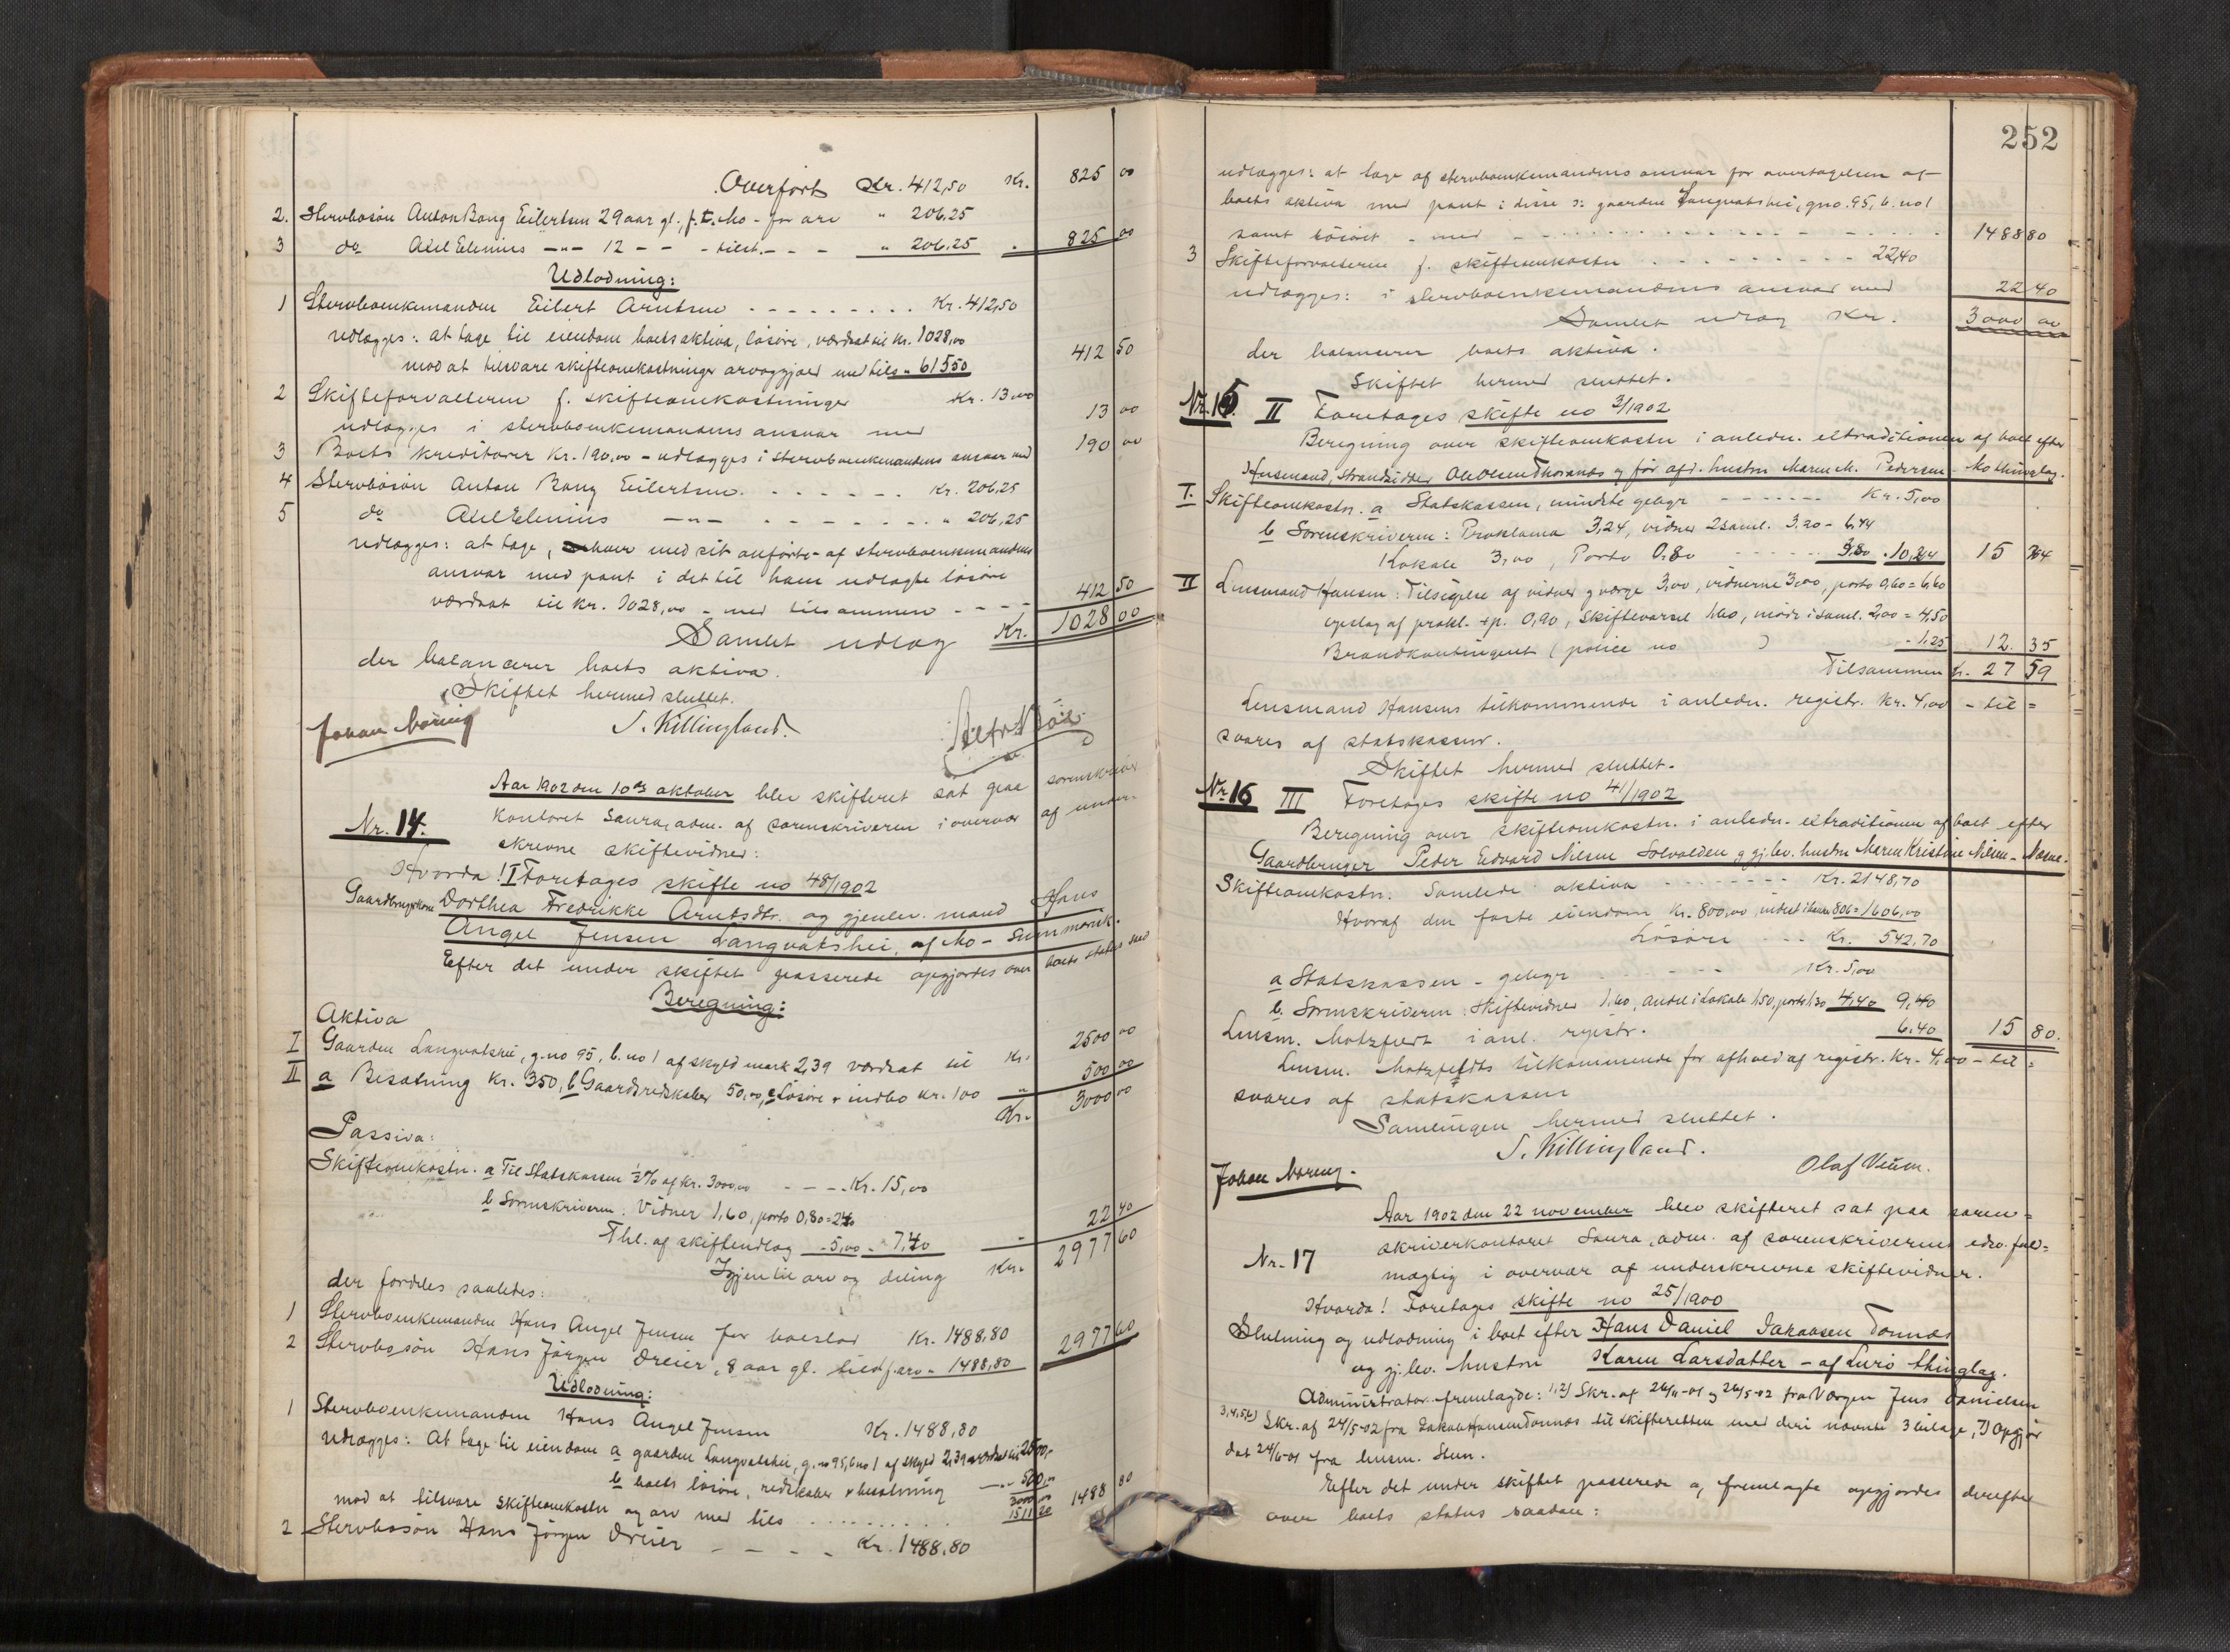 Overført Kr. 412,50 Kr. 825 00
2. Stervbosön Anton Bang Eilertsen 29 aar gl., f. t. Mo - for arv " 206.25
3 do Axel Elenius —"— 12 - - - tilst. - - - " 206,25 " 825 00
Udlodning:
1 Stervboenkemanden Eilert Arntsen . . . . . . . . . Kr. 412,50
udlægges: at tage til eiendom boets aktiva, lösöre, værdsat til kr. 1028,00
mod at tilsvare skifteomkostninger arv og gjæld med tils. " 615,50 412 50
2 Skifteforvalteren f. skifteomkostninger Kr. 13,00
udlægges i stervboenkemandens ansvar med 13 00
3 Boets kreditorer Kr. 190,00 - udlægges i stervboenkemandens ansvar med 190 00
4 Stervbosön Anton Bang Eilertsen . . . . . . . Kr. 206,25
5 do Axel Elenius —"— - - . . . . . . " 206,25
udlægges: at tage, enhver med sit anførte - af stervboenkemandens
ansvar med pant i det til ham udlagte lösöre
værdsat til kr. 1028,00 - med tilsammen - - - - 412 50
Samlet udlæg Kr. 1028 00
der balancerer boets aktiva.
Skiftet hermed sluttet.
Johan Noring S. Killingland.
Aar 1902 den 10de oktober blev skifteret sat paa sorenskriver
Nr. 14. kontoret Saura, adm. af sorenskriveren i overvær af under-
skrevne skiftevidner:
Hvorda! I Foretages skifte no 48/1902
Gaardbrugerkone Dorthea Fredrikke Arntsdtr. og gjenlev. mand Hans
Angel Jensen Langvatshei, af Mo -
Efter det under skiftet passerede opgjordes over boets status saad
Beregning:
Aktiva
I Gaarden Langvatshei, g. no 95, b. no 1 af skyld mark 2,39 værdsat til Kr. 2500 00
II a Besætning Kr. 350, b Gaardsredskaber 50,00, c Lösöre & indbo kr. 100 " 500 00
Kr. 3000 00
Passiva:
Skifteomkostn. a Til Statskassen ½ % af Kr. 3000,00 - - - . Kr. 15,00
b Sorenskriveren: Vidner 1,60, porto 0,80 = 2,40
Thl. af skifteudlæg - 5,00 - " 7,40 - 22 40
Igjen til arv og deling Kr. 2977 60
der fordeles saaledes:
1 Stervboenkemanden Hans Angel Jensen for boeslod Kr. 1488,80
2 Stervbosön Hans Jörgen Dreier, 8 aar gl. tilst f. arv " 1488,80 2977 60
Udlodning:
1 Stervboenkemanden Hans Angel Jensen Kr. 1488,80
udlægges: At tage til eiendom a gaarden Langvatshei, g. no 95, b. no 1 af skyld 2,39 værdsat til 2500,-
b boets lösöre, redskaber & besætning —"— 500,00
3000 00
mod at tilsvare skifteomkostn og arv med tils . . . . . . . . . . 1511 20 1488 80
2 Stervbosön Hans Jörgen Dreier - - - - Kr. 1488,80
252
udlægges: at tage af stervboenkemandens ansvar for overtagelsen af
boets aktiva med pant i disse o: gaarden Langvatshei, gno. 95, b. no 1
samt lösöret - med - - - - - - - - - - - - 1488 80
3 Skifteforvalteren f. skifteomkostn . . . . . . . . . . . 22,40
udlægges: i stervboenkemandens ansvar med 22 40
Samlet udlæg Kr. 3000 00
der balancerer boets aktiva.
Skiftet hermed sluttet.
Nr. 15. II Foretages skifte no 3/1902
Beregning over skifteomkostn i anledn. extraditionen af boet efter
Husmand, strandsidder Ole Olsen Thorsnes og før afd. hustru Maren M. Pedersen - Mo thinglag.
I. Skifteomkostn. a Statskassen, mindste gebyr - - - - - - - Kr. 5,00
b Sorenskriveren: Proklama 3,24, vidner 2 saml. 3,20 - 6,44
Lokale 3,00, Porto 0,80 - - - - - - 3,80 . 10,24 15 24
II Lensmand Hansen: Tilsigelse af vidner & værge 3,00, vidnerne 3,00, porto 0,60 = 6,60
opslag af prokl. + p. 0,90, Skiftevarsel 1,60, möde i saml. 2,00 = 4,50
Brandkontingent (police no ) - 1.25 12. 35
Tilsammen Kr. 27 59
Lensmand Hansens tilkommende i anledn. registr. kr. 4,00 - til =
svares af statskassen.
Skiftet hermed sluttet.
Nr. 16 III Foretages skifte no 41/1902
Beregning over skifteomkostn. i anledn. extraditionen af boet efter
Gaardbruger Peder Edvard Nilsen Solvolden & gj. lev. hustru Maren Kristine Nilsen - Næsne.
Skifteomkostn. Samlede aktiva - - - - - - - Kr. 2148,70
Hvoraf den faste eiendom Kr. 800,00 , 806 = 1606,00
Lösöre - - - Kr. 542,70
a Statskassen - gebyr - - - - - - - Kr. 5,00
b. Sorenskriveren: Skiftevidner 1,60, andel i Lokale 1,50, porto 1,30 4,40 9,40
Lensm. Motzfeldt i anl. registr. 6.40 15 80.
Lensm. Motzfeldts tilkommende for afhold af registr. Kr. 4,00 - til =
svares af statskassen
Samlingen hermed sluttet.
S. Killingland.
Johan Noring. Olaf Veum.
Aar 1902 den 22 november blev skifteret sat paa soren=
skriverkontoret Saura, adm. af sorenskriverens edsv. fuld=
Nr. 17 mægtig i overvær af underskrevne skiftevidner.
Hvorda! Foretages skifte no 25/1900
Slutning og udlodning i boet efter Hans Daniel Jakobsen Tonnes
og gj. lev. hustru Karen Larsdatter - af Lurö thinglag.
Administrator fremlagde: 1, 2) Skr. af 26/11-01 & 26/5-02 fra Værgen Jens Danielsen
3, 4, 5, 6) Skr. af 24/5-02 fra Jakob Hansen Tonnes til skifteretten med deri nævnte 3 bilage, 7) Opgjör
dat 24/6-01 fra lensm. Steen.
Efter det under skiftet passerede og fremlagte opgjordes derefter
over boets status saadan: